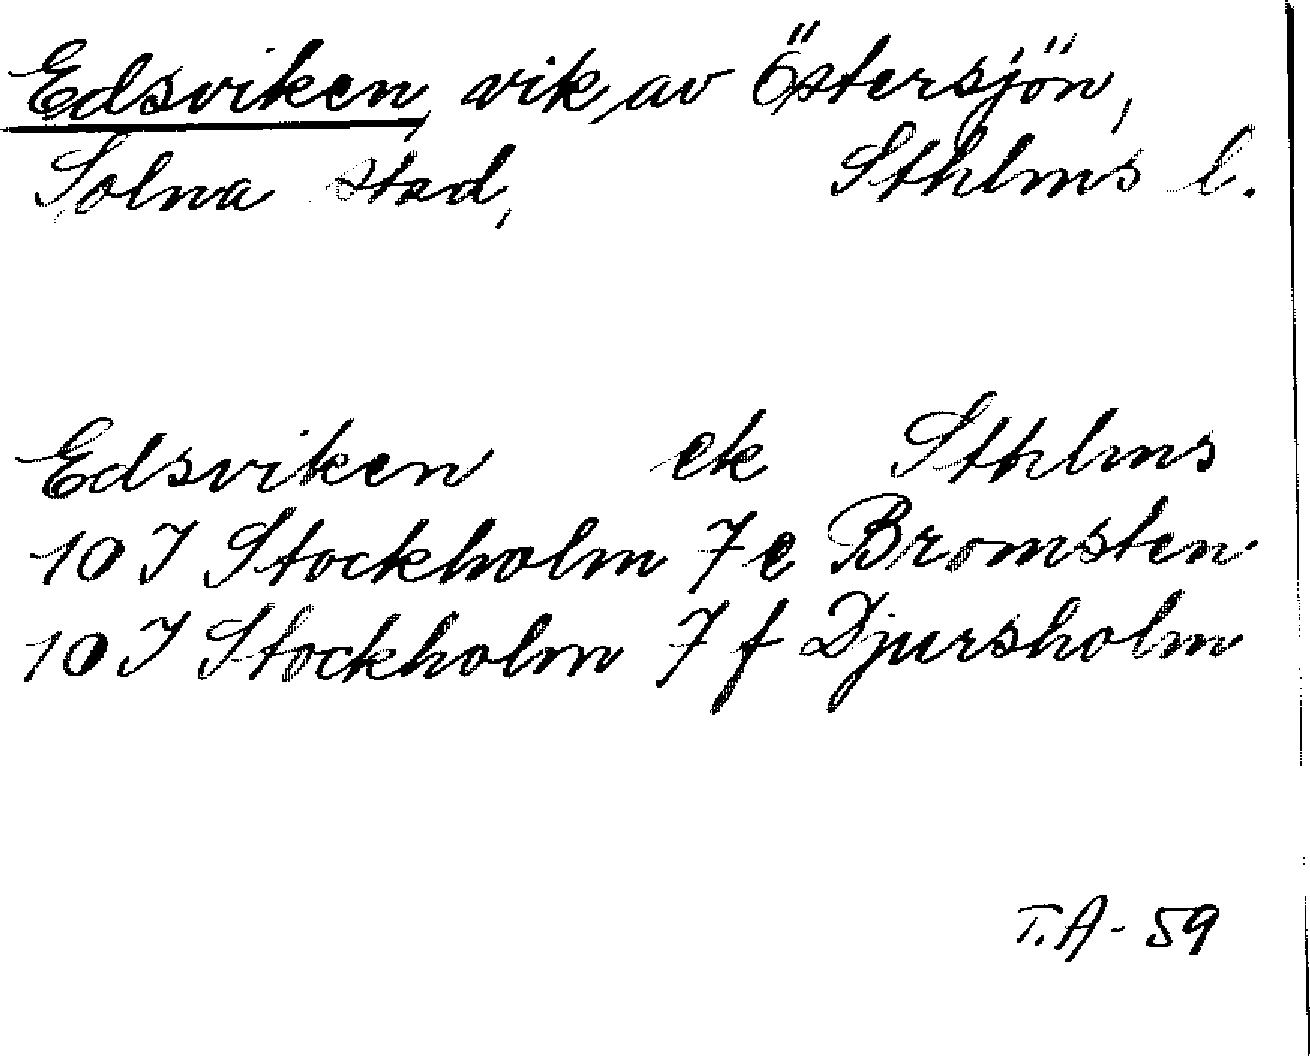 Edsviken, vik av Östersjön,
Solna stad, Sthlms l.
Edsviken ek Sthlms
10 I Stockholm 7 e Bromsten
10 I Stockholm 7 f Djursholm
T.A-59